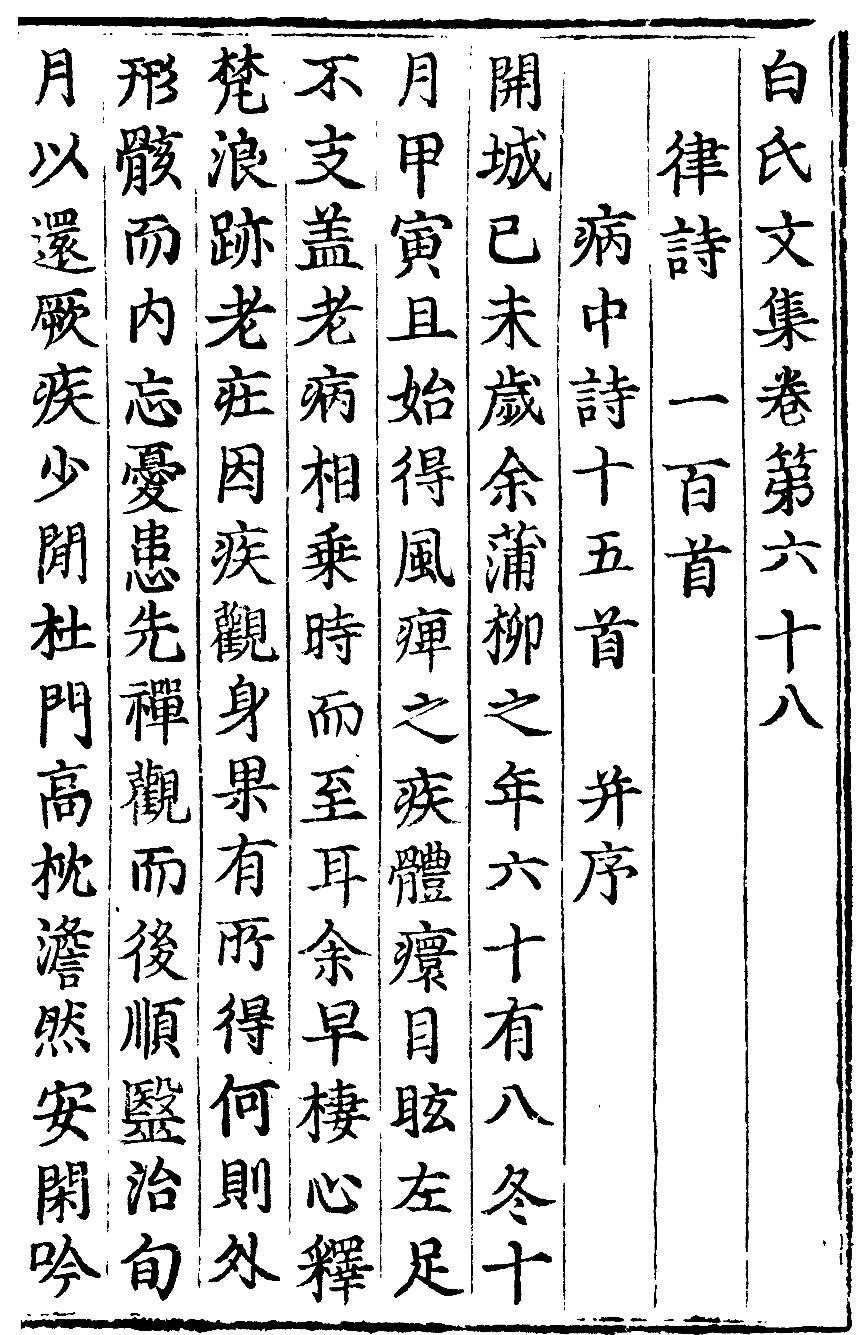 白氏文集卷第六十八
律詩　一百首
病中詩十五首　并序
開城己未歲余蒲柳之年六十有八冬十
月甲寅旦始得風痺之疾體瘝目眩左足
不支盖老病相乗時而至耳余早棲心釋
梵浪跡老荘因疾觀身果有所得何則外
形骸而内忘憂患先禪觀而後順毉治旬
月以還厥疾少閒杜門高枕澹然安閑吟